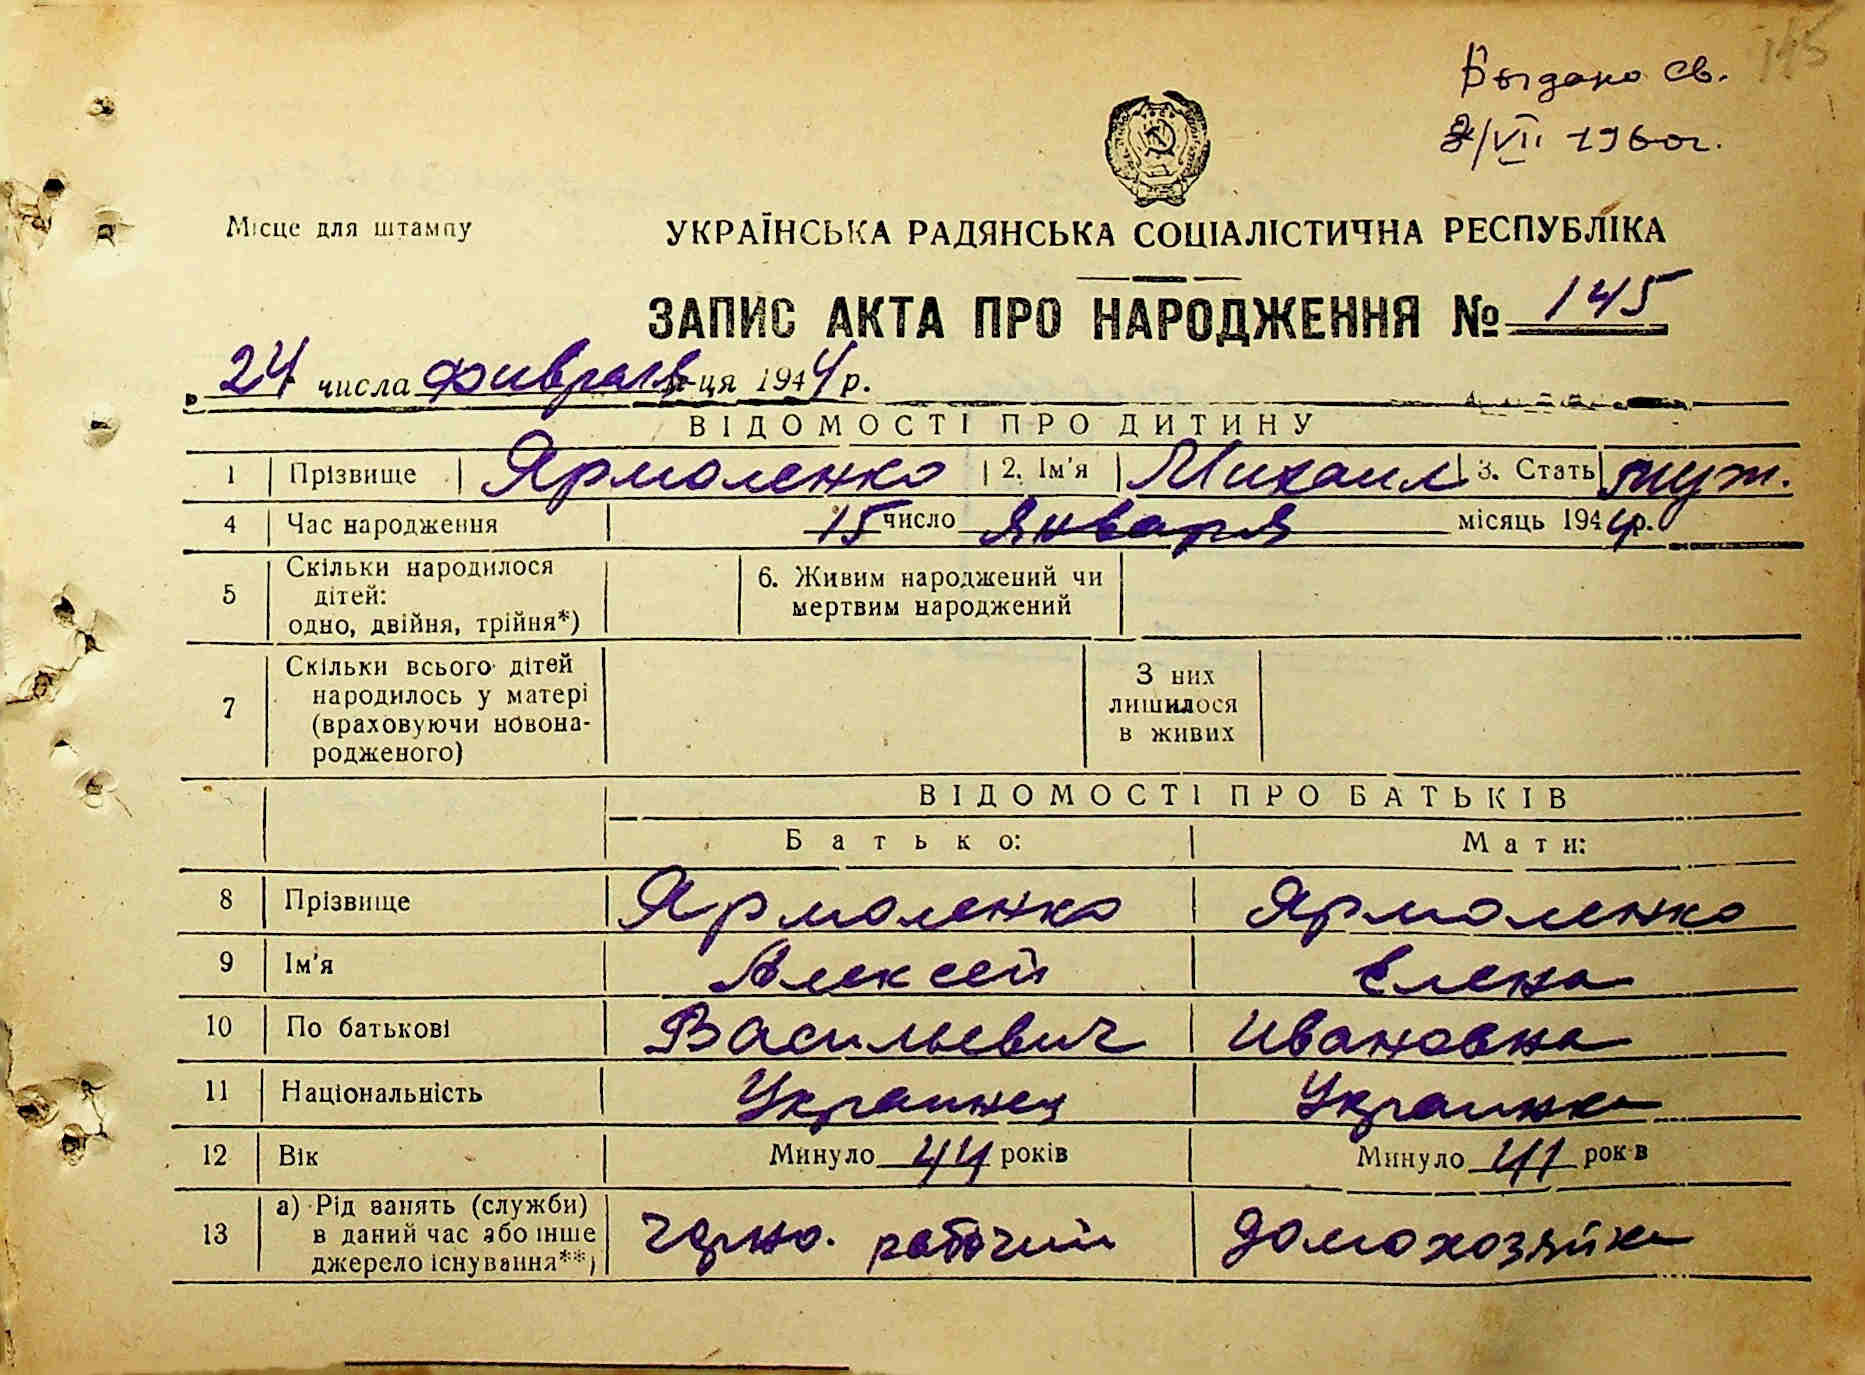 145
Выдано св.
2/VII 1960г.
Місце для штампу
УКРАЇНСЬКА РАДЯНСЬКА СОЦІАЛІСТИЧНА РЕСПУБЛІКА
ЗАПИС АКТА ПРО НАРОДЖЕННЯ № 145
24 числа февраля м-ця 1944 р.
ВІДОМОСТІ ПРО ДИТИНУ
1 Прізвище Ярмоленко 2. Ім'я Михаил 3. Стать муж.
4 Час народження 15 число января місяць 1944 р.
5 Скільки народилося дітей: одно, двійня, трійня*) 6. Живим народжений чи мертвим народжений
7 Скільки всього дітей народилось у матері (враховуючи новонародженого) З них лишилося в живих
ВІДОМОСТІ ПРО БАТЬКІВ
Батько: Мати:
8 Прізвище Ярмоленко Ярмоленко
9 Ім'я Алексей Елена
10 По батькові Васильевич Ивановна
11 Національність Украинец Украинка
12 Вік Минуло 44 років Минуло 41 років
13 а) Рід занять (служби) в даний час або інше джерело існування**) черно. рабочий домохозяйка